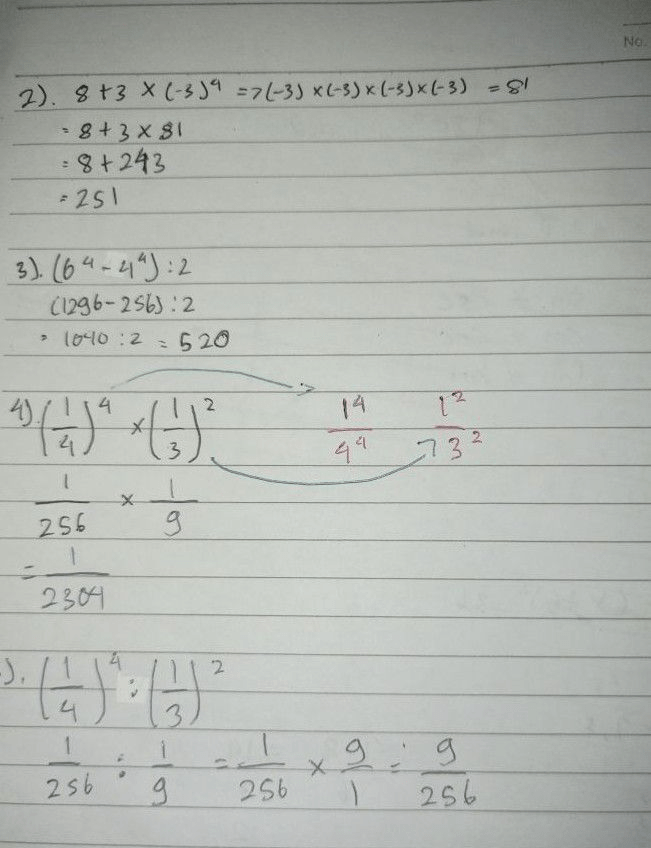 No.
2). 8 + 3 × (-3)⁴ => (-3) × (-3) × (-3) × (-3) = 81
= 8 + 3 × 81
= 8 + 243
= 251
3). (6⁴ - 4⁴) : 2
(1296 - 256) : 2
= 1040 : 2 = 520
4). (1/4)⁴ × (1/3)² -> 1⁴/4⁴ -> 1²/3²
1/256 × 1/9
= 1/2304
). (1/4)⁴ : (1/3)²
1/256 : 1/9 = 1/256 × 9/1 = 9/256